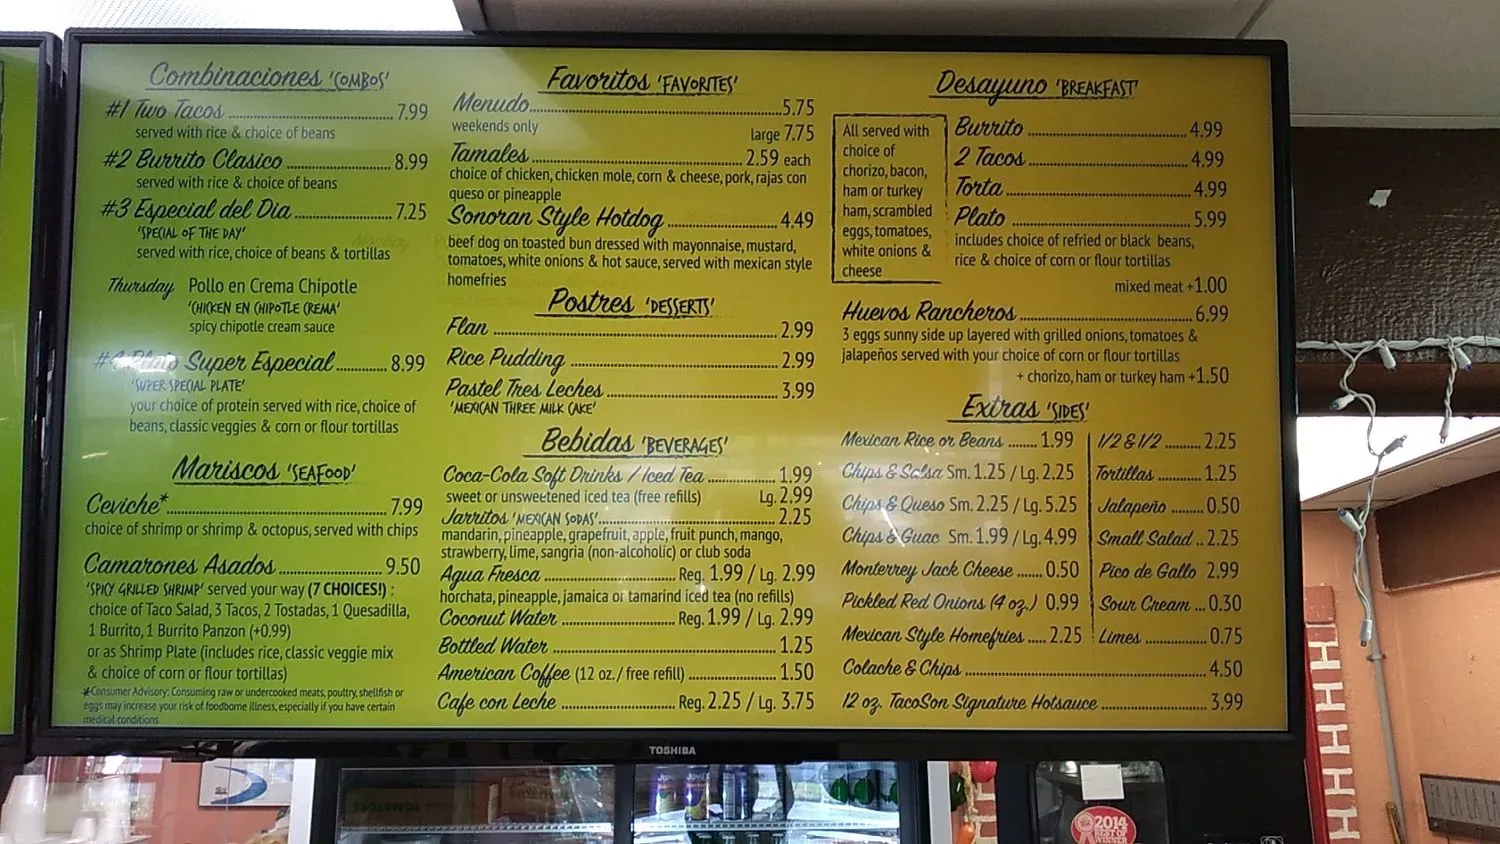 Combinaciones 'COMBOS'
#1 Two Tacos 7.99
served with rice & choice of beans
#2 Burrito Clasico 8.99
served with rice & choice of beans
#3 Especial del Dia 7.25
'SPECIAL OF THE DAY'
served with rice, choice of beans & tortillas
Thursday Pollo en Crema Chipotle
'CHICKEN EN CHIPOTLE CREMA'
spicy chipotle cream sauce
#4 Plato Super Especial 8.99
'SUPER SPECIAL PLATE'
your choice of protein served with rice, choice of
beans, classic veggies & corn or flour tortillas
Mariscos 'SEAFOOD'
Ceviche* 7.99
choice of shrimp or shrimp & octopus, served with chips
Camarones Asados 9.50
'SPICY GRILLED SHRIMP' served your way (7 CHOICES!) :
choice of Taco Salad, 3 Tacos, 2 Tostadas, 1 Quesadilla,
1 Burrito, 1 Burrito Panzon (+0.99)
or as Shrimp Plate (includes rice, classic veggie mix
& choice of corn or flour tortillas)
*Consumer Advisory: Consuming raw or undercooked meats, poultry, shellfish or
eggs may increase your risk of foodborne illness, especially if you have certain
medical conditions
Favoritos 'FAVORITES'
Menudo 5.75
weekends only large 7.75
Tamales 2.59 each
choice of chicken, chicken mole, corn & cheese, pork, rajas con
queso or pineapple
Sonoran Style Hotdog 4.49
beef dog on toasted bun dressed with mayonnaise, mustard,
tomatoes, white onions & hot sauce, served with mexican style
homefries
Postres 'DESSERTS'
Flan 2.99
Rice Pudding 2.99
Pastel Tres Leches 3.99
'MEXICAN THREE MILK CAKE'
Bebidas 'BEVERAGES'
Coca-Cola Soft Drinks / Iced Tea 1.99
sweet or unsweetened iced tea (free refills) Lg. 2.99
Jarritos 'MEXICAN SODAS' 2.25
mandarin, pineapple, grapefruit, apple, fruit punch, mango,
strawberry, lime, sangria (non-alcoholic) or club soda
Agua Fresca Reg. 1.99 / Lg. 2.99
horchata, pineapple, jamaica or tamarind iced tea (no refills)
Coconut Water Reg. 1.99 / Lg. 2.99
Bottled Water 1.25
American Coffee (12 oz. / free refill) 1.50
Cafe con Leche Reg. 2.25 / Lg. 3.75
Desayuno 'BREAKFAST'
All served with
choice of
chorizo, bacon,
ham or turkey
ham, scrambled
eggs, tomatoes,
white onions &
cheese
Burrito 4.99
2 Tacos 4.99
Torta 4.99
Plato 5.99
includes choice of refried or black beans,
rice & choice of corn or flour tortillas
mixed meat +1.00
Huevos Rancheros 6.99
3 eggs sunny side up layered with grilled onions, tomatoes &
jalapeños served with your choice of corn or flour tortillas
+ chorizo, ham or turkey ham +1.50
Extras 'SIDES'
Mexican Rice or Beans 1.99
Chips & Salsa Sm. 1.25 / Lg. 2.25
Chips & Queso Sm. 2.25 / Lg. 5.25
Chips & Guac Sm. 1.99 / Lg. 4.99
Monterrey Jack Cheese 0.50
Pickled Red Onions (4 oz.) 0.99
Mexican Style Homefries 2.25
1/2 & 1/2 2.25
Tortillas 1.25
Jalapeño 0.50
Small Salad 2.25
Pico de Gallo 2.99
Sour Cream 0.30
Limes 0.75
Colache & Chips 4.50
12 oz. TacoSon Signature Hotsauce 3.99
TOSHIBA
2014
BEST OF
WINNER